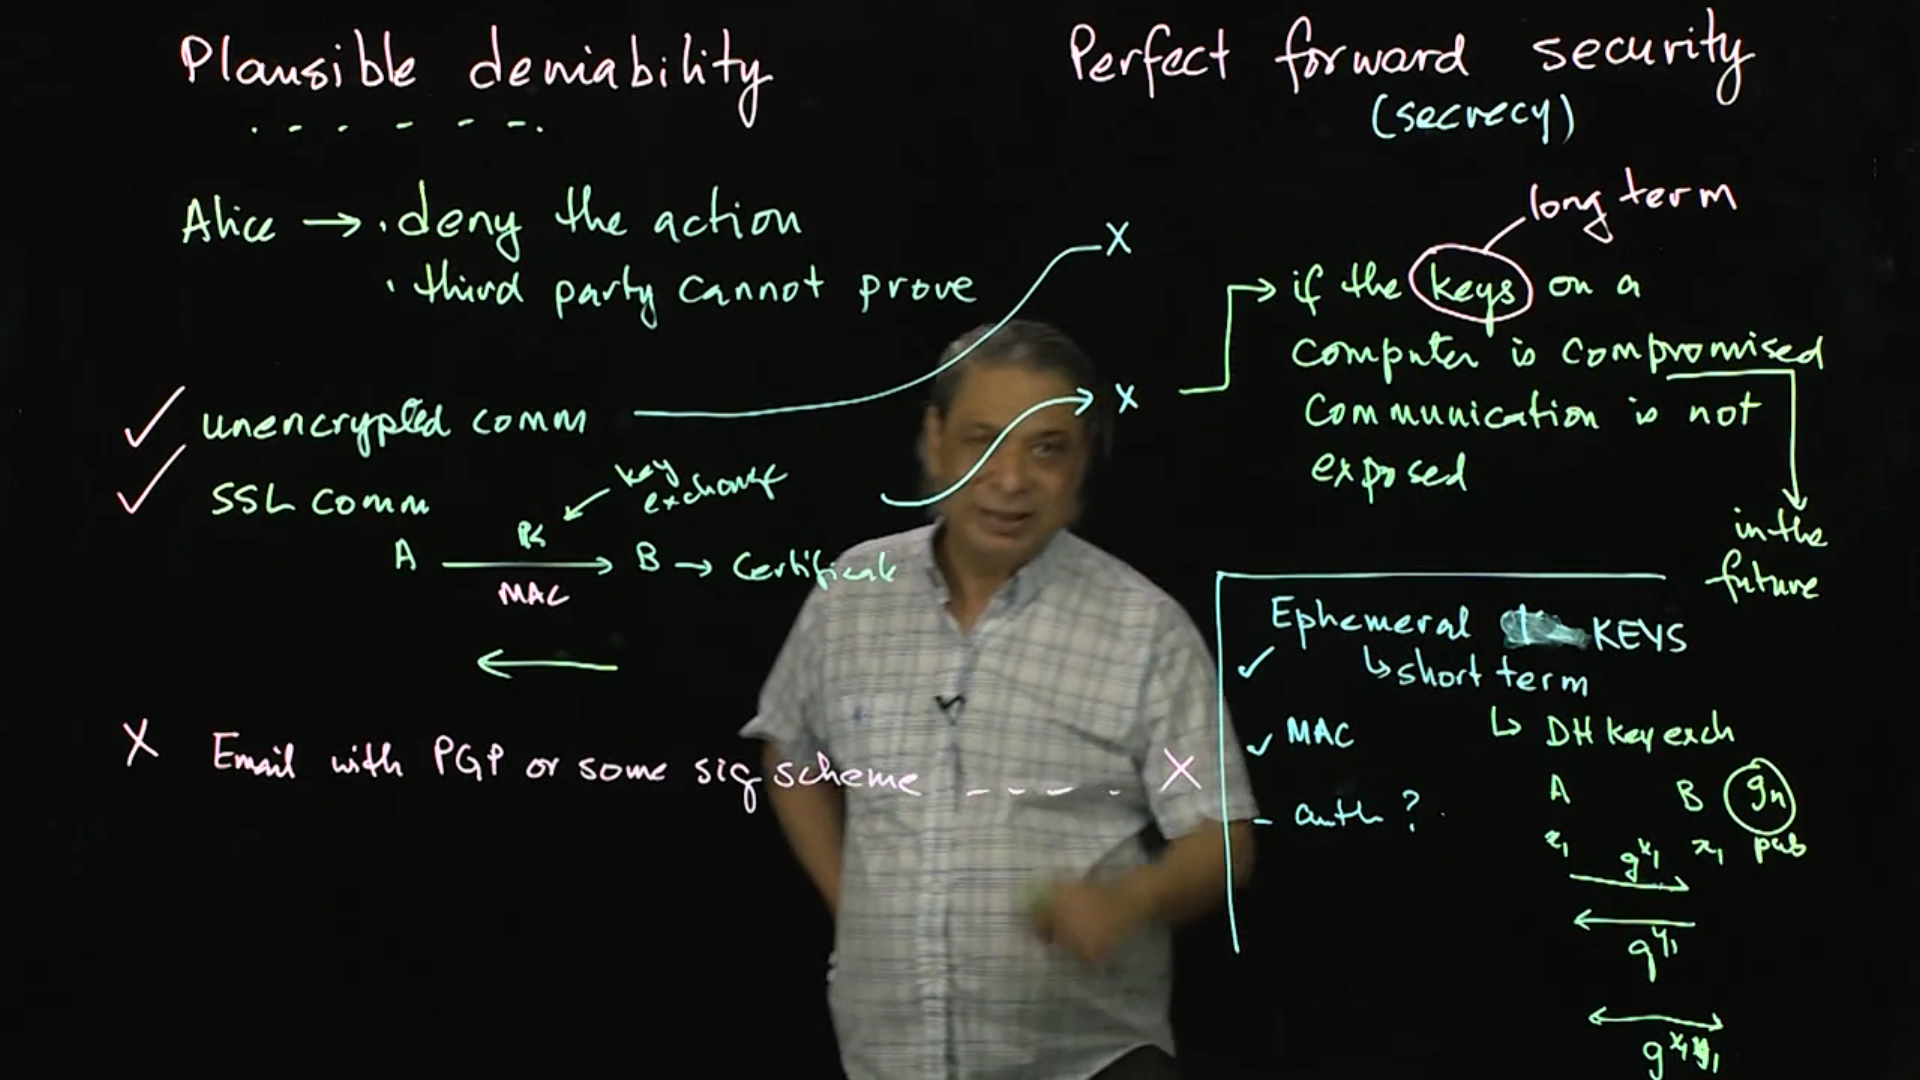 Plausible deniability
Alice → · deny the action
· third party cannot prove
✓ unencrypted comm X
✓ SSL comm X
key
exchange
PK
A → B → Certificate
MAC
X Email with PGP or some sig scheme - - - - . X
Perfect forward security
(secrecy)
long term
→ if the keys on a
computer is compromised
communication is not
exposed
in the
future
Ephemeral KEYS
✓ ↳ short term
✓ MAC
↳ DH key exch
- auth ?
A B gn
x1 x1 pub
g^x1
g^y1
g^x1y1